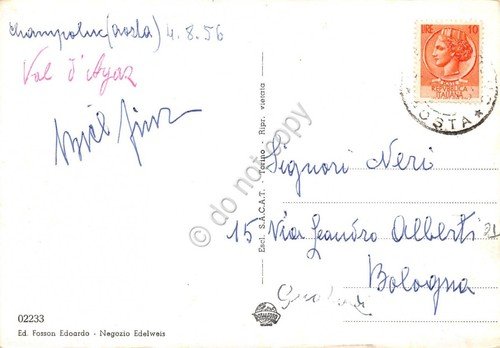 Champoluc (Aosta) 4.8.56
Val d'Ayaz
LIRE 10
REPUBBLICA
ITALIANA
AOSTA
Signori Neri
15 Via Leandro Alberti 21
Bologna
Escl. S.A.C.A.T. - Torino - Ripr. vietata
do not copy
02233
Ed. Fosson Edoardo - Negozio Edelweis